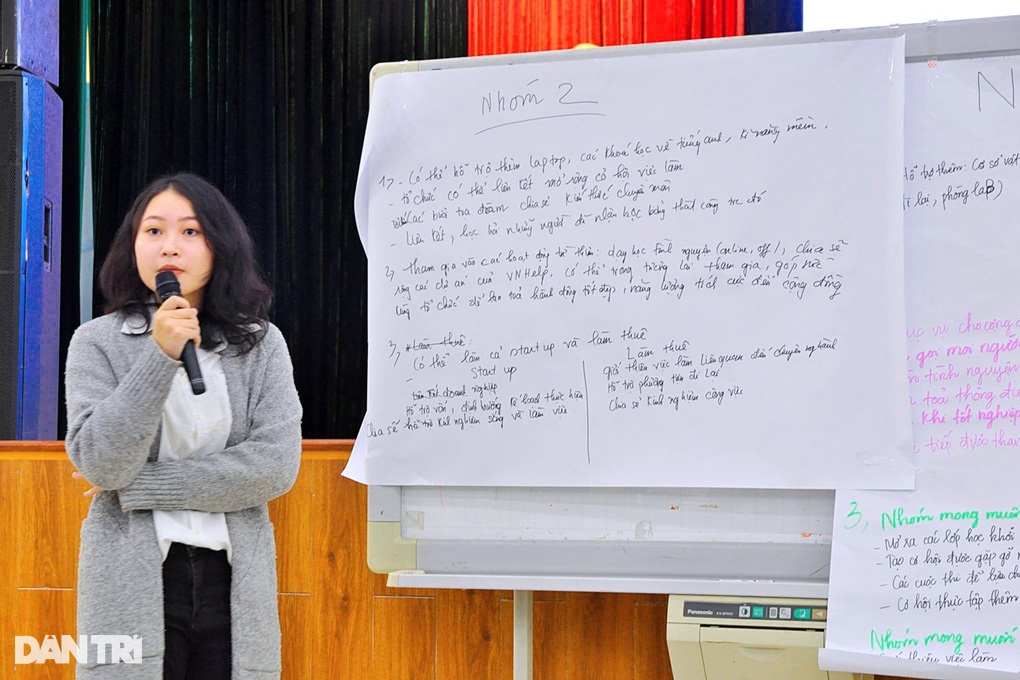 Nhóm 2
1, - Có thể hỗ trợ thêm laptop, các khoá học về tiếng anh, kĩ năng mềm.
- tổ chức có thể liên kết mở rộng cơ hội việc làm
các buổi tọa đàm chia sẻ kiến thức chuyên môn
- Liên kết, học hỏi những người đã nhận học bổng thành công trc đó
2, Tham gia vào các hoạt động từ thiện: dạy học tình nguyện (online, off), chia sẻ
rộng các dự án của VNHelp, có thể trong tương lai tham gia, góp sức
cùng tổ chức để lan toả hành động tốt đẹp, năng lượng tích cực đến cộng đồng
3, Làm thuê:
Có thể làm cả startup và làm thuê
- Start up
doanh nghiệp
Hỗ trợ vốn, định hướng kế hoạch thực hiện
Chia sẻ hỗ trợ kinh nghiệm sống và làm việc
Làm thuê
giới thiệu việc làm liên quan đến chuyên ngành
Hỗ trợ phương tiện đi lại
Chia sẻ kinh nghiệm công việc
N
hỗ trợ thêm: Cơ sở vật
đi lại, phòng lab)
vụ cho cộng đ
gọi mọi người
tình nguyện
toả thông đi
khi tốt nghiệp
tiếp được tham
3, Nhóm mong muốn
- Mở ra các lớp học khởi
- Tạo cơ hội được gặp gỡ
- Các cuộc thi để
- Cơ hội thực tập thêm
Nhóm mong muốn
thiệu việc làm
Panasonic
DÂN TRÍ